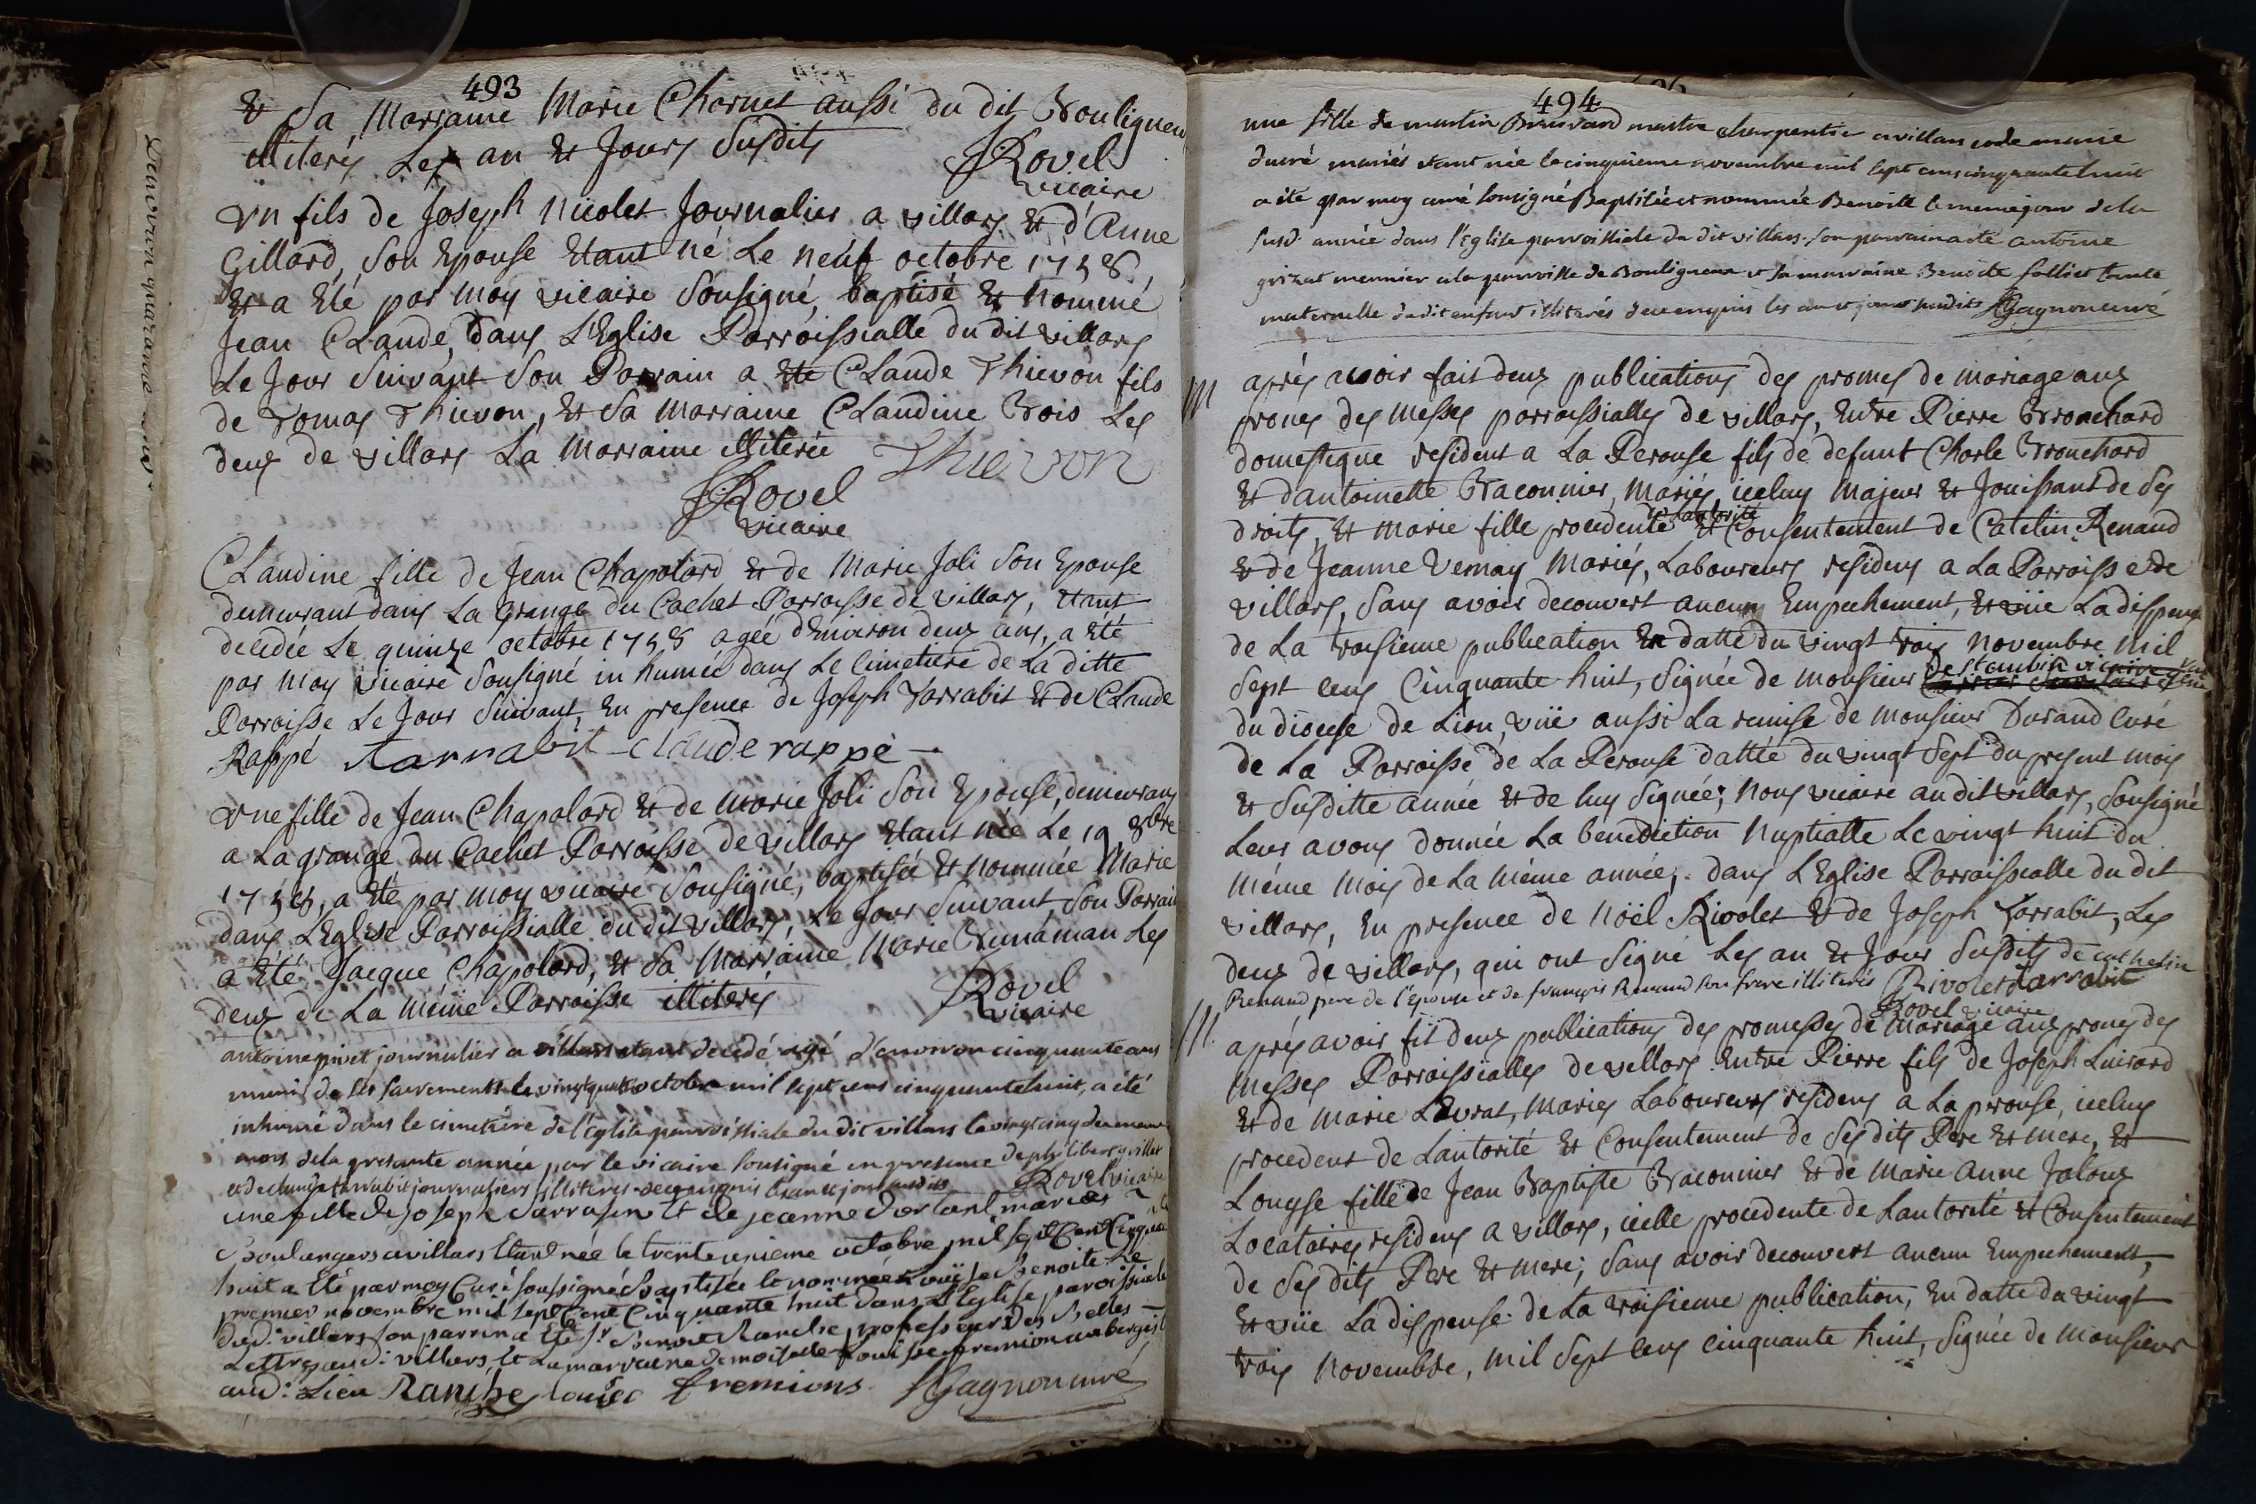 493
& Sa Marraine Marie Charnet aussi du dit Bouligneu
illiterés Les an & Jours Susdits
Rovel
vicaire
Un fils de Joseph Nicolet Journalier a villars & d'Anne
Gillard, Son Epouse Etant né Le neuf octobre 1758
& a Eté par moy vicaire Sousigné, baptisé & nommé
Jean Claude, dans L'Eglise Parroissialle du dit villars
Le Jour Suivant Son Parrain a Eté Claude Thievon fils
de Tomas Thievon, & Sa Marraine Claudine Bois Les
deux de villars La Marraine illiterée Thievon
Rovel
vicaire
Claudine fille de Jean Chapolard & de Marie Joli Son Epouse
demeurant dans La grange du Cachet Parroisse de villars, Etant
decedée Le quinze octobre 1758 agée d'Environ deux ans, a Eté
par moy vicaire Sousigné in humée dans Le Cimetiere de La ditte
Parroisse Le Jour Suivant, En presence de Joseph Tarrabit & de Claude
Rappé Tarrabit Claude rappé
Une fille de Jean Chapolard & de Marie Joli Son Epouse, demeurans
a La grange du Cachet Parroisse de villars Etant née Le 19 8bre
1758, a Eté par moy vicaire Sousigné, baptisée & nommée Marie
dans L'Eglise Parroissialle du dit villars, Le jour Suivant Son Parrain
a Eté Jacque Chapolard, & Sa Marraine Marie Les
deux de La même Parroisse illiterés
Rovel
vicaire
antoine journalier a villars etant decedé agé d'environ cinquante ans
munis de ses sacrements le vingtquatre octobre mil sept cens cinquantehuit, a été
inhumé dans le cimetiere de l'eglise parroissiale du dit villars le vingt cinq du meme
mois de la presente année par le vicaire sousigné en presence de philibert
et de claude tarrabit journaliers illiteres de ce enquis les an et jour susdits Rovel vicaire
une fille de Joseph Sarrasin et de jeanne dortant mariés
Boulangers a villars Etant née le trente unieme octobre mil sept Cent Cinquante
huit a Eté par moy Curé soussigné Baptisée et nommée Louise Benoite Le
premier novembre mil sept Cent Cinquante huit dans L'Eglise paroissiale
dud: villars son parrin a Eté Sr Benoit Ranche, professeur des Belles
Lettres aud: villars et La marraine demoiselle Louise fremion aubergiste
aud: Lieu Ranche Louise fremions Gagnon curé
494
une fille de martin maitre charpentier a villars et de marie
ducré mariés etant née le cinquieme novembre mil sept cens cinquante huit
a ete par moy curé sousigné Baptisée et nommée Benoite le meme jour de la
susd. année dans l'Eglise parroissiale du dit villars. son parrain a eté antoine
meunier a la parroisse de Bouligneux et sa marraine Benoite tante
maternelle du dit enfant illiterés de ce enquis les an et jour susdits Gagnon curé
M après avoir fait deux publications des promes de mariage aux
prones des Messes parroissialles de villars, Entre Pierre Brouchard
domestique resident a La Perouse fils de defunt Charle Brouchard
& d'antoinette Braconnier, Mariés, iceluy Majeur & Jouissant de Ses
droits, & Marie fille procedente de Lautorité & Consentement de Catelin Renaud
& de Jeanne Vernay Mariés, Laboureurs residens a La Parroisse de
villars, Sans avoir decouvert aucun Empechement, & vüe La dispense
de La troisieme publication En datte du vingt trois Novembre Mil
Sept Cens Cinquante huit, Signée de Monsieur De St aubin vicaire
du diocese de Lion, vüe aussi La remise de Monsieur Durand Curé
de La Parroisse de La Perouse dattée du vingt Sept du present mois
& Susditte année & de luy Signée; Nous vicaire au dit villars, Sousigné
Leur avons donnée La benediction Nuptialle Le vingt huit du
même Mois de La même année, dans L'Eglise Parroissialle du dit
villars, En presence de Noël Rivolet & de Joseph Tarrabit, Les
deux de villars, qui ont Signé Les an & Jour Susdits de cathelin
Renaud pere de l'epouse et de françois Renaud son frere illiterés Rivolet Tarrabit
Rovel vicaire
M après avoir fit deux publications des promesses de Mariage aux prones des
Messes Parroissialles de villars Entre Pierre fils de Joseph Luisard
& de Marie Levrat, Mariés Laboureurs residens a La perouse, iceluy
procedent de Lautorité & Consentement de Ses dits Pere & Mere, &
Louyse fille de Jean Baptiste Braconnier & de Marie Anne Jaloux
Locataires residens a villars, icelle procedente de Lautorité & Consentement
de Ses dits Pere & Mere; Sans avoir decouvert aucun Empechement,
& vüe La dispense de La troisieme publication, En datte du vingt
trois Novembre, Mil Sept Cens cinquante huit, Signée de Monsieur